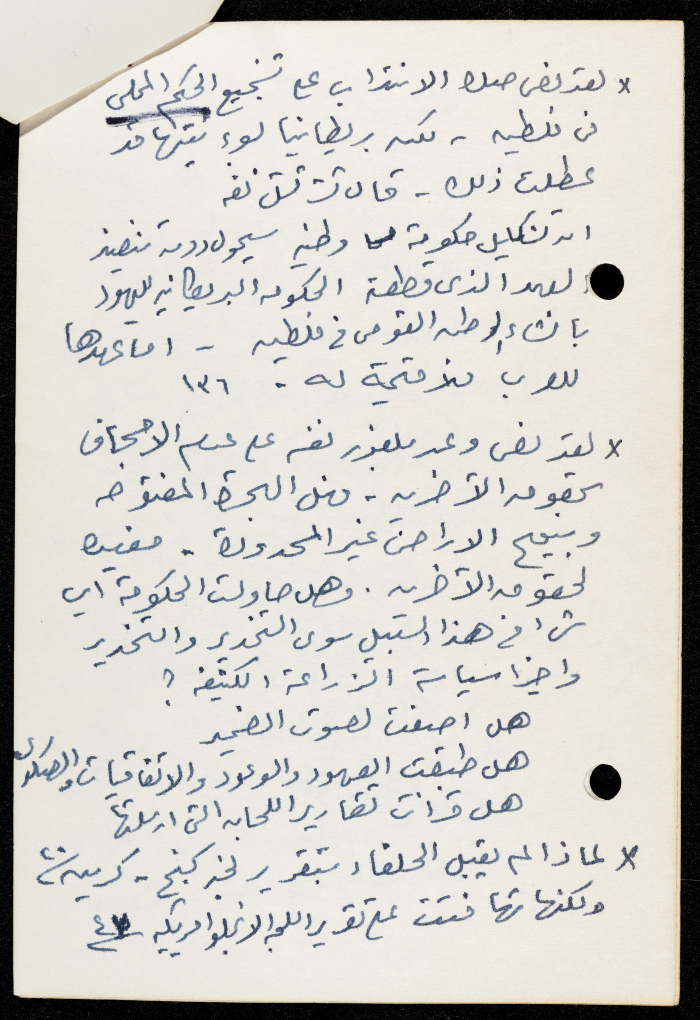 x لقد نص صك الانتداب على تشجيع الحكم المحلى
فى فلسطين - لكن بريطانيا لسوء نيتها قد
عطلت ذلك - قال تشرتشل نفسه
ان تشكيل حكومة وطنية سيحول دون تنفيذ
العهد الذى قطعته الحكومة البريطانية لليهود
بانشاء الوطن القومى فى فلسطين - اما عهدها
للعرب فلا قيمة له - ١٣٦
x لقد نص وعد بلفور نفسه على عدم الاجحاف
بحقوق الآخرين - وهل الهجرة المفتوحة
وبيع الاراضى غير المحدودة - مفيدة
لحقوق الآخرين . وهل حاولت الحكومة اي
شىء فى هذا السبيل سوى التخدير والتخدير
واخيرا سياسة الزراعة الكثيفة ؟
هل اصغت لصوت الضمير
هل طبقت العهود والوعود والاتفاقيات والصكوك
هل قرأت تقارير اللجان التى ارسلتها
x لماذا لم يقبل الحلفاء بتقرير لجنة كنج - كرين
ولكنها تهافتت على تقرير اللجنة الانجلو امريكية